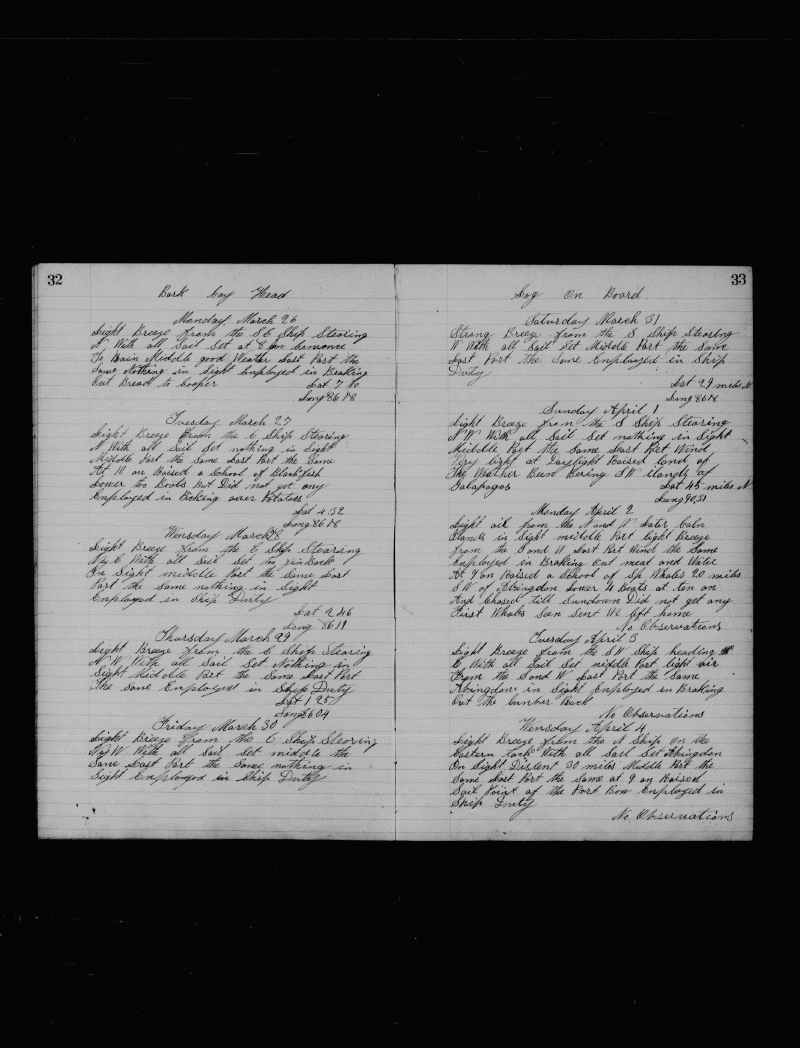 32
Bark Gay Head
Monday March 26
Light Breeze from the SE Ship Stearing
N With all Sail Set at 8 pm Comence
To Rain Middle good Weather Last Part the
Same Nothing in Sight Employed in Braking
Out Bread to Cooper Lat 7 10
Long 86 18
Tuesday March 27
Light Breeze from the E Ship Stearing
N With all Sail Set nothing in Sight
Middle Part the Same Last Part the Same
At 10 am Raised a School of Blackfish
Lower too Boats But Did not get any
Employed in Picking over Potatoes
Lat 4.32
Long 86 18
Wensday March 28
Light Breeze from the E Ship Stearing
N by E With all Sail Set to
In Sight middle Part the Same Last
Part the same nothing in Sight
Employed in Ship Duty
Lat 2.46
Long 86 11
Thursday March 29
Light Breeze from the E Ship Stearing
N W With all Sail Set Nothing in
Sight Middle Part the Same Last Part
The Same Employed in Ship Duty
Lat 1 25
Long 86 04
Friday March 30
Light Breeze from the E Ship Stearing
N by W With all Sail Set middle the
Same Last Part the Same nothing in
Sight Employed in Ship Duty
33
Log On Board
Saturday March 31
Strong Breeze from the S Ship Stearing
W With all Sail Set Middle Part the Same
Last Part the Same Employed in Ship
Duty
Lat 29 miles N
Long 86 18
Sunday April 1
Light Breeze from the S Ship Stearing
N W With all Sail Set nothing in Sight
Middle Part the Same Last Part Wind
Very light at Daylight Raised land of
The Weather Bow Bering SW Ilands of
Galapagos Lat 45 miles N
Long 90,51
Monday April 2
Light air from the N and W Later Calm
Ilands in Sight middle Part light Breeze
from the S and W Last Part Wind the Same
Employed in Braking Out meat and Water
At 9 am Raised a School of Sp Whales 20 miles
SW of Abingdon Lower 4 Boats at ten am
And Chased till Sundown Did not get any
First Whales Seen Sence We left home
No Observations
Tuesday April 3
Light Breeze from the SW Ship heading
E With all Sail Set middle Part light air
From the S and W Last Part the Same
Abingdon in Sight Employed in Braking
Out the Lumber Back
No Observations
Wensday April 4
Light Breeze from the N Ship On the
Eastern Tack With all Sail Set Abingdon
On Sight Distent 30 miles Middle Part the
Same Last Part the Same at 9 am Raised
Sail Point of the Port Bow Employed in
Ship Duty
No Observations